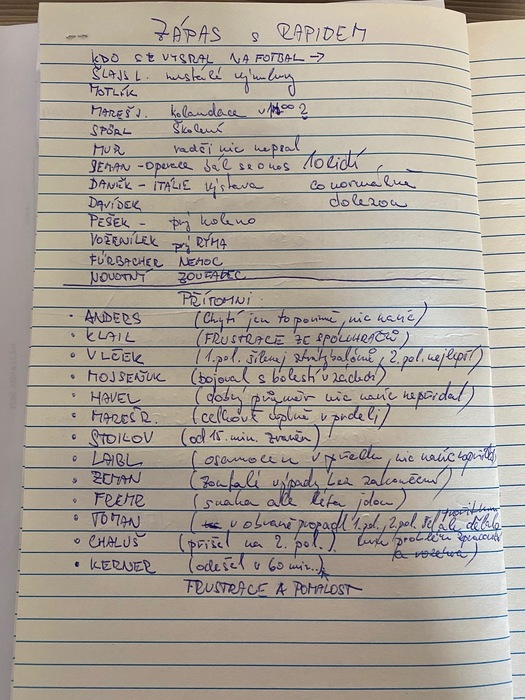 ZÁPAS s RAPIDEM
KDO SE VYSRAL NA FOTBAL →
ŠLAJS L. neustálé výmluvy
MOTLÍK
MAREŠ J. kolaudace v 2
SPÖRL Školení
MUR radši nic nepsal
ZEMAN - Operace bál se o nos 10 lidí
DANĚK - ITÁLIE výstava co normálně
DAVÍDEK dolezou
PEŠEK - prý koleno
VOŽENÍLEK prý RÝMA
FÜRBACHER NEMOC
NOVOTNÝ ZOUFALEC
PŘÍTOMNI:
• ANDERS (Chytí jen to povinné, nic navíc)
• KLAIL (FRUSTRACE ZE SPOLUHRÁČŮ)
• VLČEK (1. pol. šílenej ztráty balónů, 2. pol. nejlepší)
• MOJSENJUK (bojoval s bolestí v zádech)
• HAVEL (dobrý průměr nic navíc nepřidal)
• MAREŠ R. (celkově úplně v prdeli)
• STOILOV (od 15. min. zraněn)
• LAIBL (osamocen v středu, nic navíc)
• ZEMAN (zoufalé výpady bez zakončení)
• FREMR (snaha ale léta jdou)
• TOMAN (v obraně propadl 1. pol., 2. pol. šel ale dělalo
• CHALUŠ (přišel na 2. pol.) problém zpracovat
• KERNER (odešel v 60 min..) a rozehrá)
FRUSTRACE A POMALOST